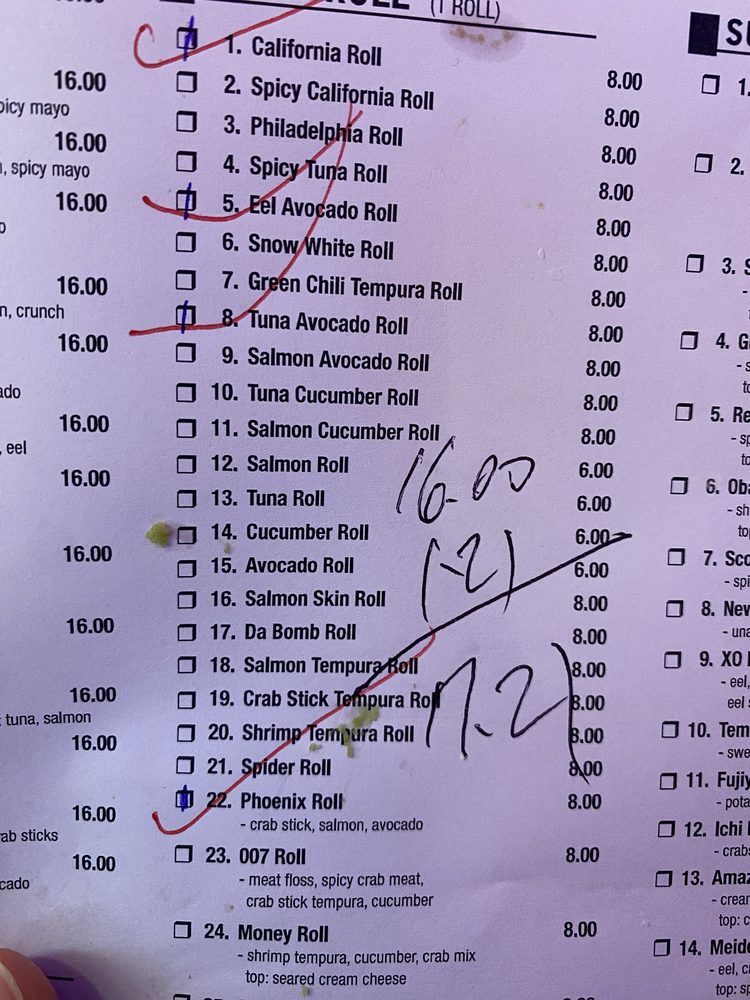 (1 ROLL)
1. California Roll 8.00
2. Spicy California Roll 8.00
3. Philadelphia Roll 8.00
4. Spicy Tuna Roll 8.00
5. Eel Avocado Roll 8.00
6. Snow White Roll 8.00
7. Green Chili Tempura Roll 8.00
8. Tuna Avocado Roll 8.00
9. Salmon Avocado Roll 8.00
10. Tuna Cucumber Roll 8.00
11. Salmon Cucumber Roll 8.00
12. Salmon Roll 6.00
13. Tuna Roll 6.00
14. Cucumber Roll 6.00
15. Avocado Roll 6.00
16. Salmon Skin Roll 8.00
17. Da Bomb Roll 8.00
18. Salmon Tempura Roll 8.00
19. Crab Stick Tempura Roll 8.00
20. Shrimp Tempura Roll 8.00
21. Spider Roll 8.00
22. Phoenix Roll 8.00
- crab stick, salmon, avocado
23. 007 Roll 8.00
- meat floss, spicy crab meat,
crab stick tempura, cucumber
24. Money Roll 8.00
- shrimp tempura, cucumber, crab mix
top: seared cream cheese
16.00
(-2)
16.00
mayo
16.00
, spicy mayo
16.00
16.00
, crunch
16.00
16.00
, eel
16.00
16.00
16.00
16.00
tuna, salmon
16.00
16.00
sticks
16.00
1.
2.
3.
4.
5.
6.
7.
8.
9. XO
- eel,
eel
10.
11.
12. Ichi
13.
14.
- eel,
top: